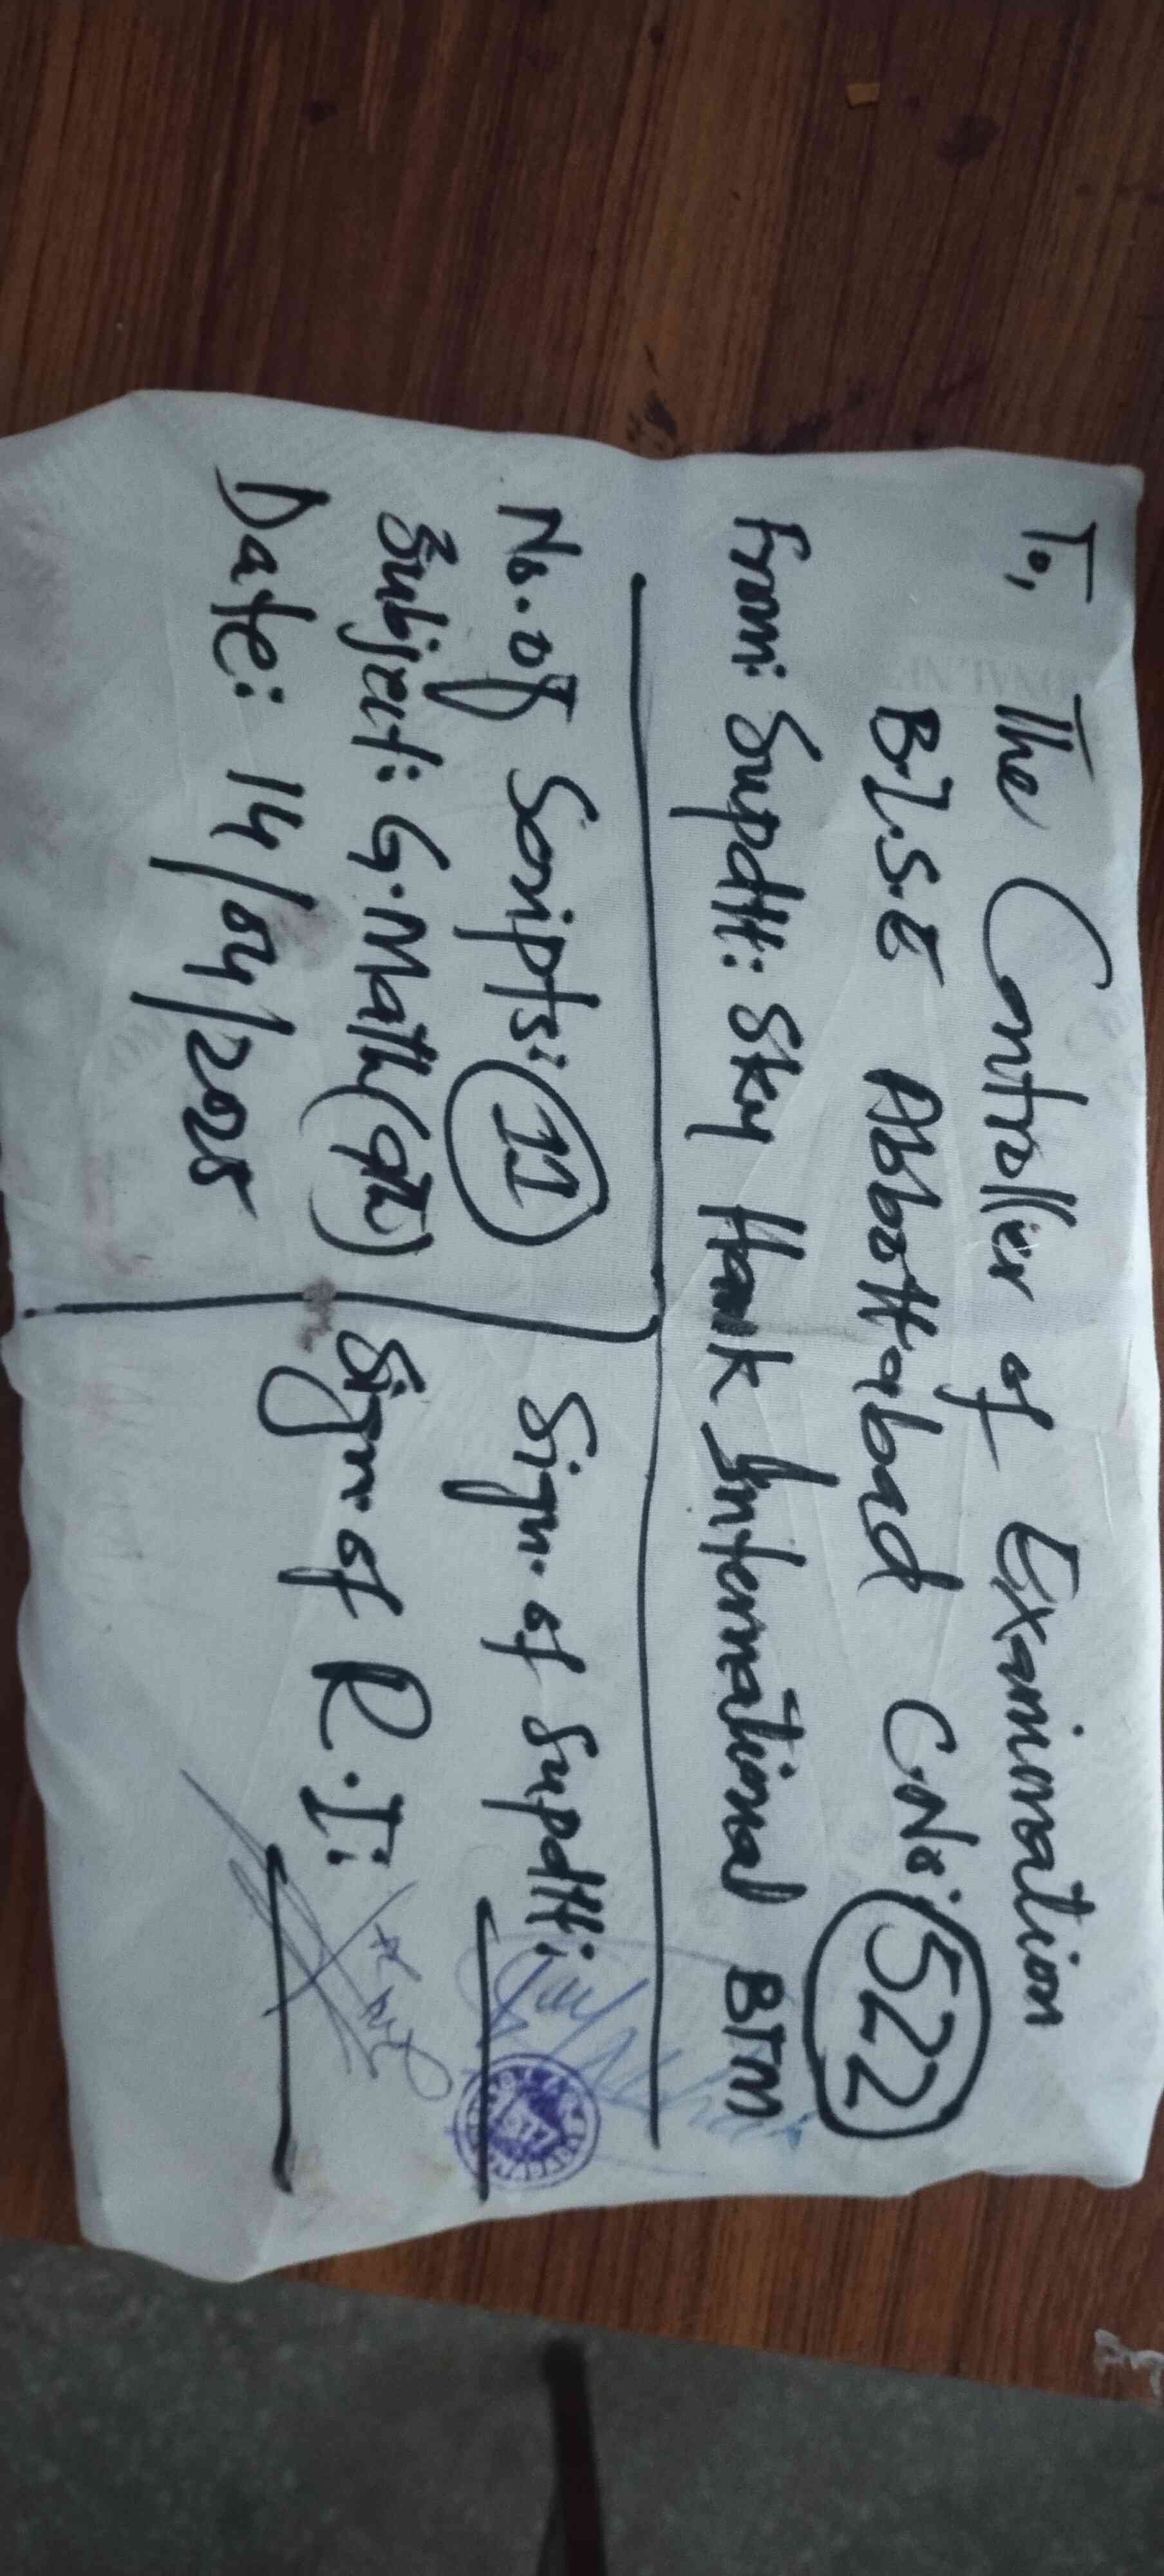 To, The Controller of Examination
B.I.S.E Abbottabad C.No: 522
From: Supdtt: Sky Hawk International BTM
No. of Scripts: 11
Subject: G.Math (9th)
Date: 14/04/2025
Sign. of Supdtt:
Sign. of R.I: